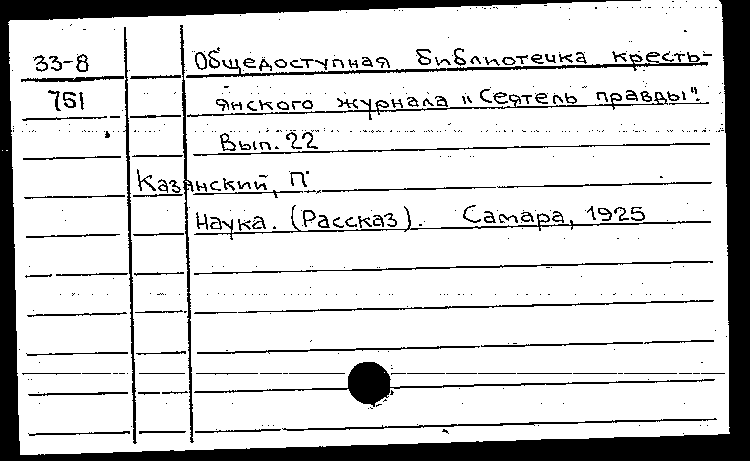 33-8 Общедоступная библиотечка кресть-
751 янского журнала "Сеятель правды".
Вып. 22
Казанский, П.
Наука. (Рассказ). Самара, 1925